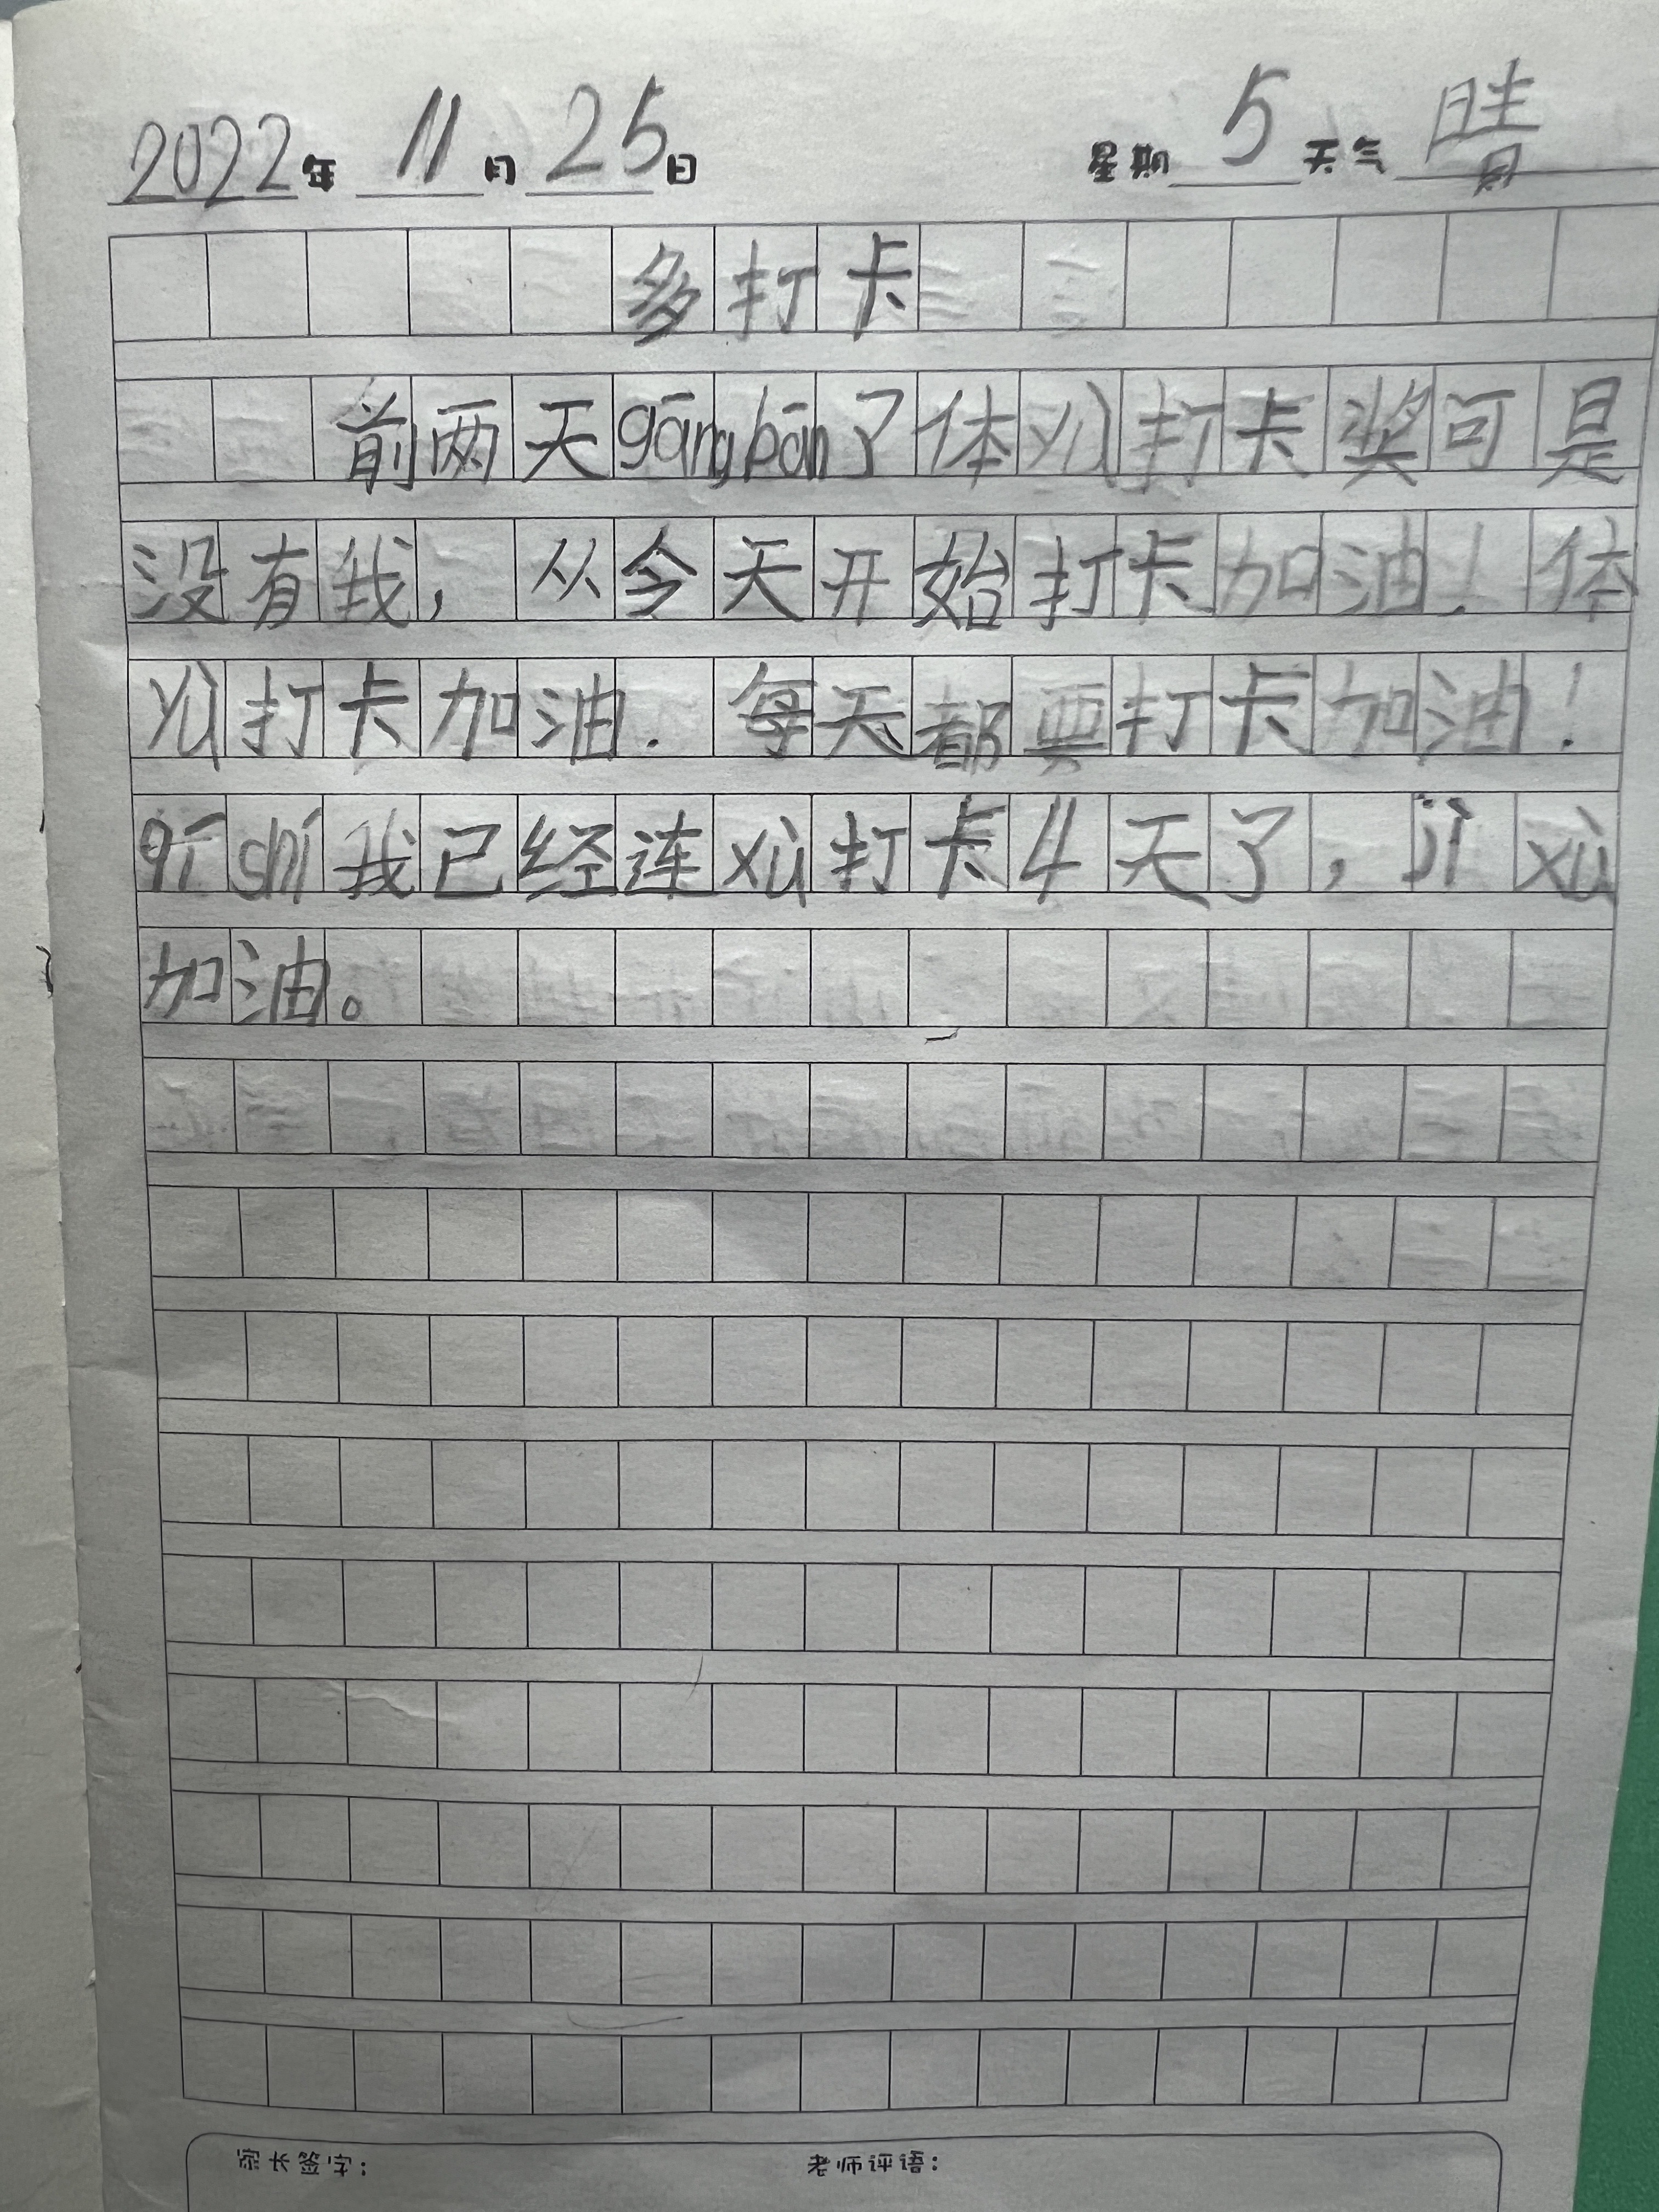 2022年 11月25日 星期 5 天气 晴
多打卡
前两天gāng bān了体yù打卡奖可是
没有我，从今天开始打卡加油！体
yù打卡加油．每天都要打卡加油！
qí shí我已经连xù打卡4天了，jì xù
加油。
家长签字： 老师评语：